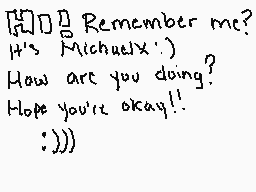 HI! Remember me?
It's Michaelx :)
How are you doing?
Hope you're okay!!
:)))